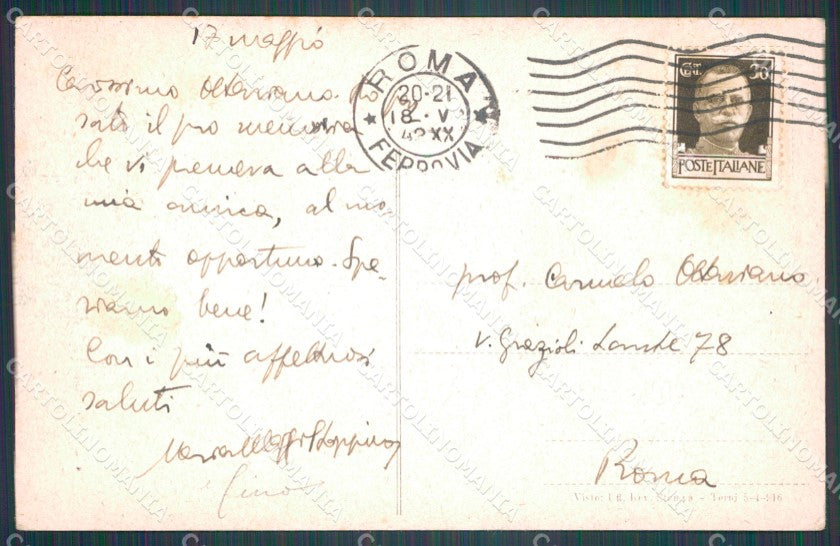 17 maggio
Carissimo Ottaviano. Ho
sato il pro memoria
che vi premeva alla
mia amica, al mo
mento opportuno. Spe-
riamo bene!
Con i più affettuosi
saluti
ROMA
20-21
18 · V
42 XX
FERROVIA
CT. 30
POSTE ITALIANE
prof. Carmelo Ottaviano
v. Grazioli Lante 78
Roma
Visto: Uff. Rev. Stampa - Terni 5-4-116
CARTOLINOMANIA